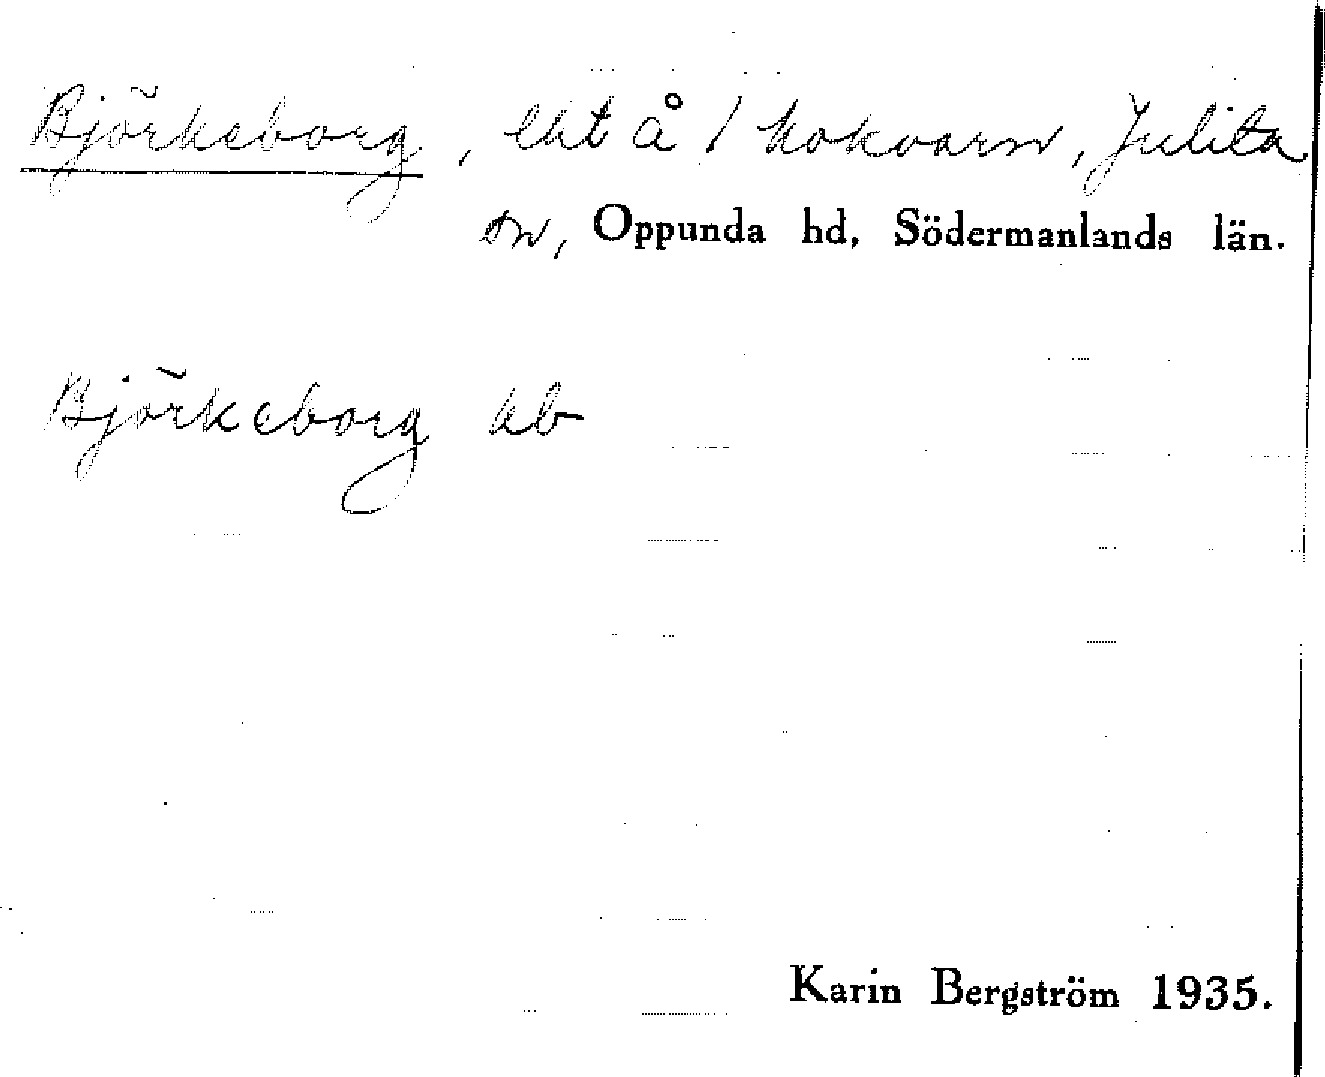 Björkeborg, lht å 1 Kokvarn, Julita
sn, Oppunda hd, Södermanlands län.
Björkeborg ek
Karin Bergström 1935.